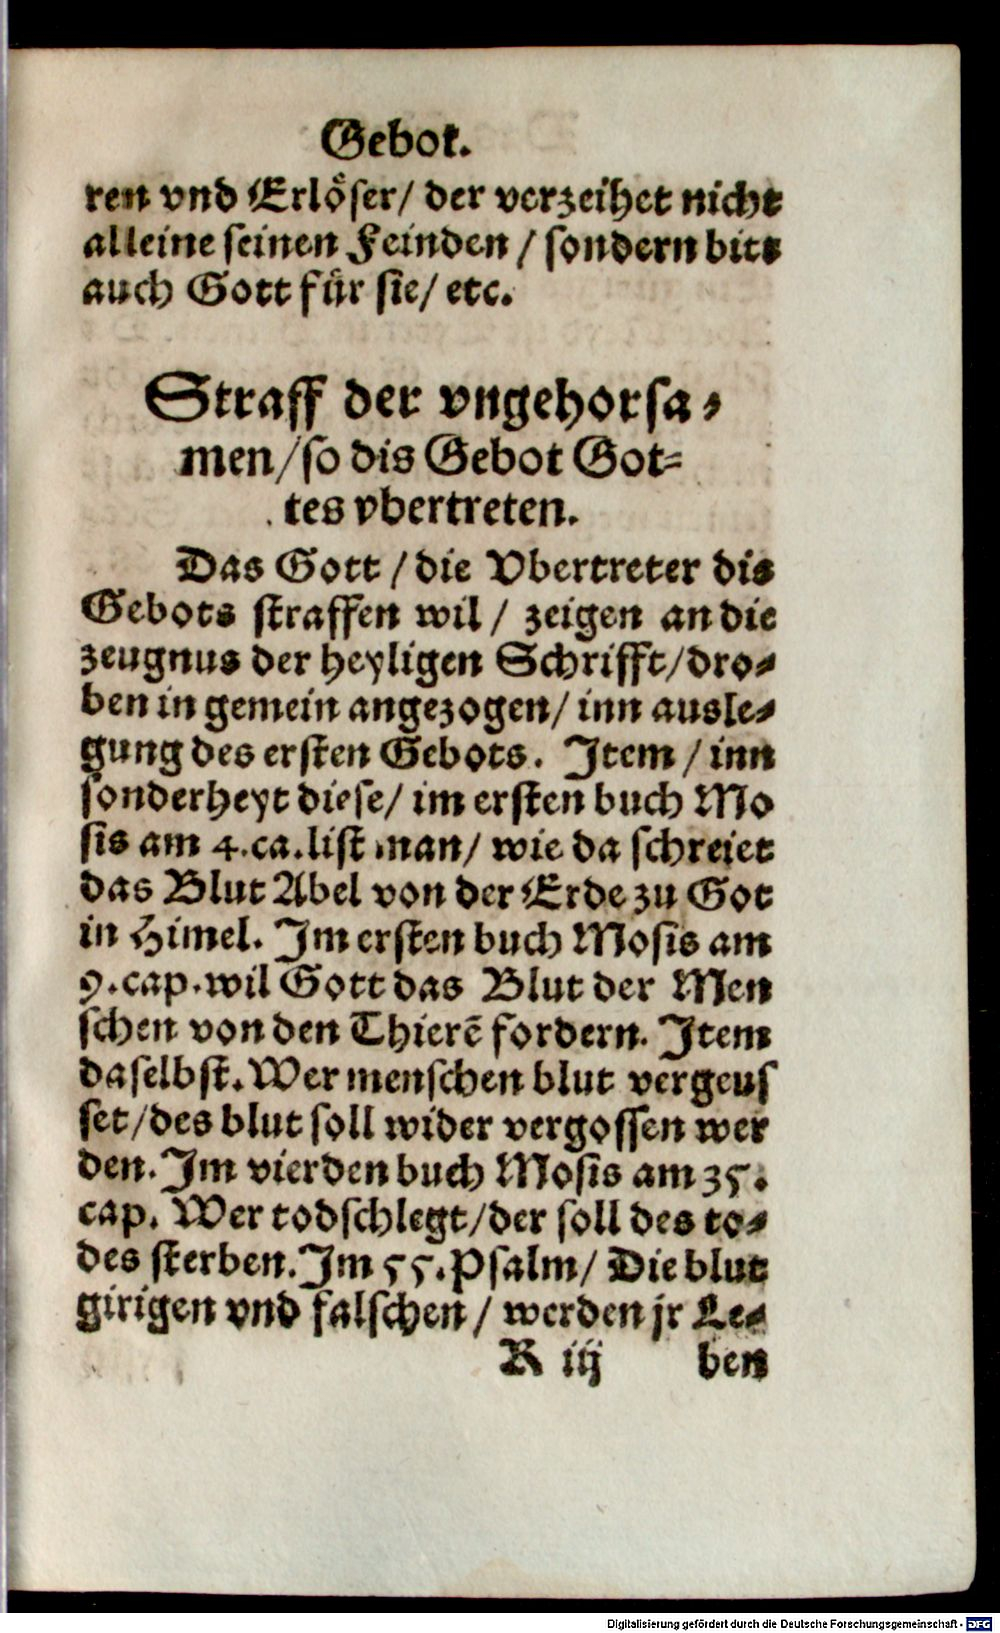 Gebot.
ren vnd Erlöser/ der verzeihet nicht
alleine seinen Feinden / sondern bits
auch Gott für sie/ etc.
Straff der vngehorsa-
men/so dis Gebot Got=
tes vbertreten.
Das Gott / die Vbertreter dis
Gebots straffen wil / zeigen an die
zeugnus der heyligen Schrifft/dro-
ben in gemein angezogen/ inn ausle-
gung des ersten Gebots. Item / inn
sonderheyt diese/ im ersten buch Mo
sis am 4.ca.list man/ wie da schreiet
das Blut Abel von der Erde zu Got
in Himel. Im ersten buch Mosis am
9.cap.wil Gott das Blut der Men
schen von den Thierē fordern. Item
daselbst. Wer menschen blut vergeus
set/des blut soll wider vergossen wer
den. Im vierden buch Mosis am 35.
cap. Wer todschlegt/der soll des to-
des sterben. Im 55.Psalm/ Die blut
girigen vnd falschen / werden jr Le-
R iij ben
Digitalisierung gefördert durch die Deutsche Forschungsgemeinschaft - DFG